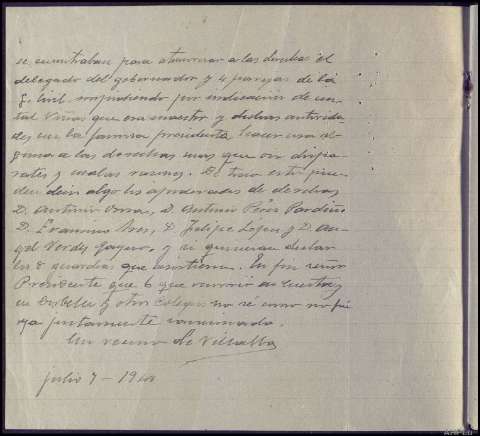 se encontraban para atemorizar a las derechas el
delegado del gobernador y 4 parejas de la
g. civil impidiendo por indicación de un
tal Vivas que era maestro y dichas autorida-
des con la famosa presidenta, hacer uso al-
guno a las derechas mas que oir dispa-
rates y malas razones. De todo esto pue-
den decir algo los apoderados de derechas
D. Antonio D. Antonio Pérez Pardiño
D. Erasmo D. Felipe López y D. An-
gel Verdes Gayoso, y si quisieran declar
los 8 guardias que asistieron. En fin señor
Presidente que lo que ocurrio en cuestion
en y otros Colegios no sé como no fué
ya justamente sancionado.
Un vecino de Villalba
julio 7 - 19